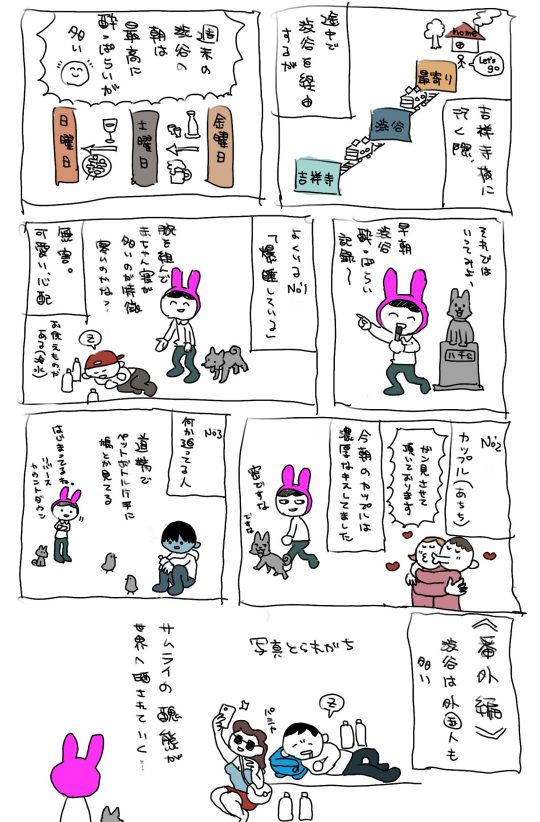 home
Let's go
最寄り
渋谷
吉祥寺
吉祥寺校に
行く際、
途中で
渋谷を経由
するが
週末の
渋谷の
朝は
最高に
酔っぱらいが
多い
金曜日
土曜日
日曜日
それでは
いってみよ、
早朝
渋谷
酔っぱらい
記録〜
ハチ公
よくいる No.1
「爆睡している」
腕を組んで
赤ちゃん寝が
多いのが特徴
寒いのかなっ?
無害。
可愛い、心配
お供えものが
ある(涙)
Z
No.2
カップル(あちち)
ガン見させて
頂いております
今朝のカップルは
濃厚なキスしてました
密ですな
ですね
No.3
何か迫ってる人
道端で
ペットボトル片手に
横とか見てる
はじまってるね。
リバース
カウントダウン
《番外編》
渋谷は外国人も
多い
写真とられがち
Z
パシャ
サムライの醜態が
世界へ晒されていく…